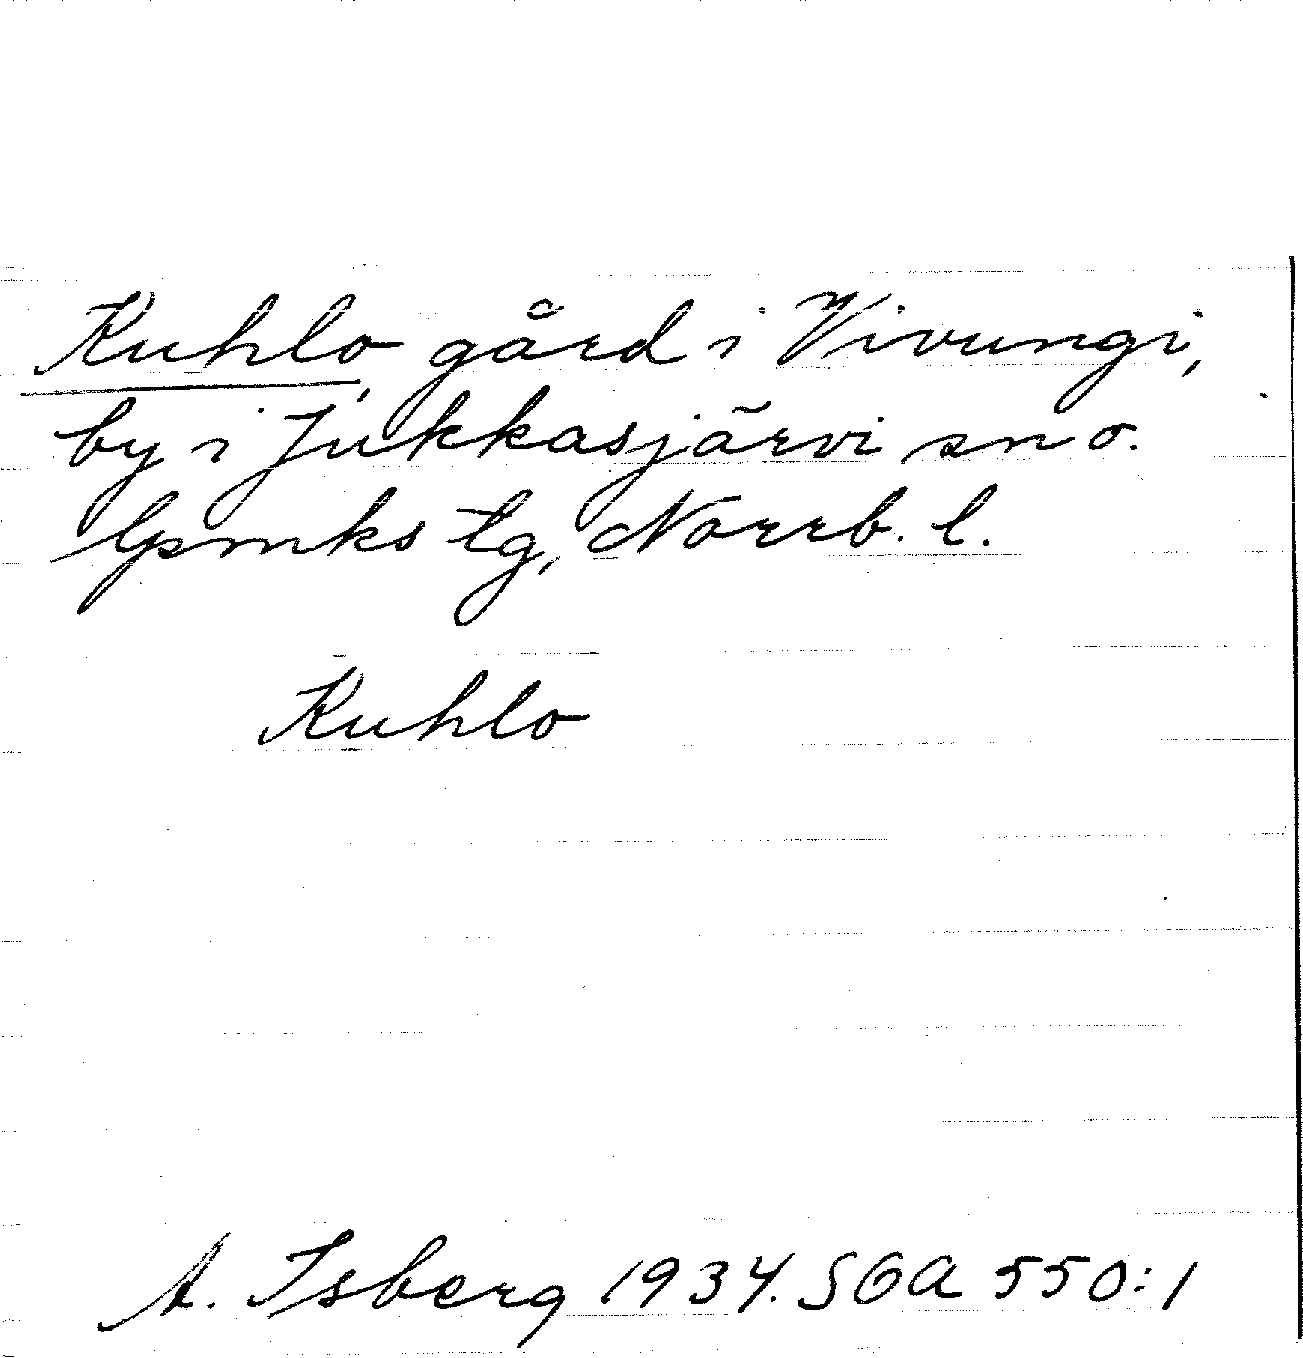 Kuhlo, gård i Vivungi,
by i Jukkasjärvi sn o.
lpmks tg, Norrb. l.
Kuhlo
A. Isberg 1934. SOA 550:1